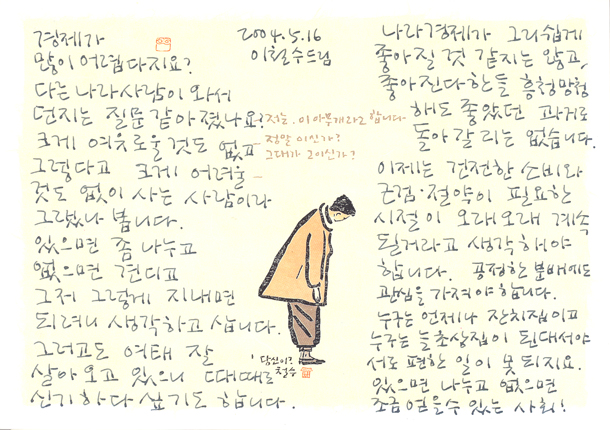 경제가
많이 어렵다지요?
다른 나라사람이 와서
던지는 질문 같아졌나요?
크게 여유로울 것도 없고
그렇다고 크게 어려울
것도 없이 사는 사람이라
그랬나 봅니다.
있으면 좀 나누고
없으면 견디고
그저 그렇게 지내면
되려니 생각하고 삽니다.
그러고도 여태 잘
살아오고 있으니 때때로
신기하다 싶기도 합니다.
2004.5.16
이철수드림
저는, 이아무개라고 합니다
정말 이신가?
그대가 그이신가?
당신이?
철수
나라경제가 그리쉽게
좋아질 것 같지는 않고,
좋아진다 한들 흥청망청
해도 좋았던 과거로
돌아갈 리는 없습니다.
이제는 건전한 소비와
근검·절약이 필요한
시절이 오래오래 계속
될거라고 생각해야
합니다. 공정한 분배에도
관심을 가져야합니다.
누구는 언제나 잔치집이고
누구는 늘초상집이 된대서야
서로 편한 일이 못되지요.
있으면 나누고 없으면
조금 얻을수 있는 사회!